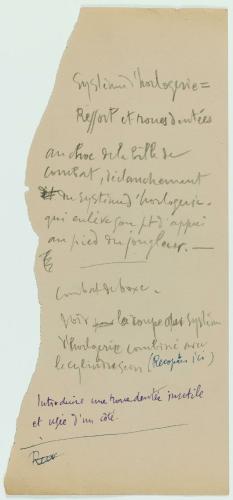 Système d'horlogerie =
Ressort et roues dentées
au choc de la bille de
combat, déclanchement
du système d'horlogerie.
qui enlève son pt d'appui
au pied du jongleur. —
Combat de boxe.
Voir la coupe du système
d'horlogerie combiné avec
le cylindre (Recopier ici)
Introduire une roue dentée inutile
et usée d'un côté.